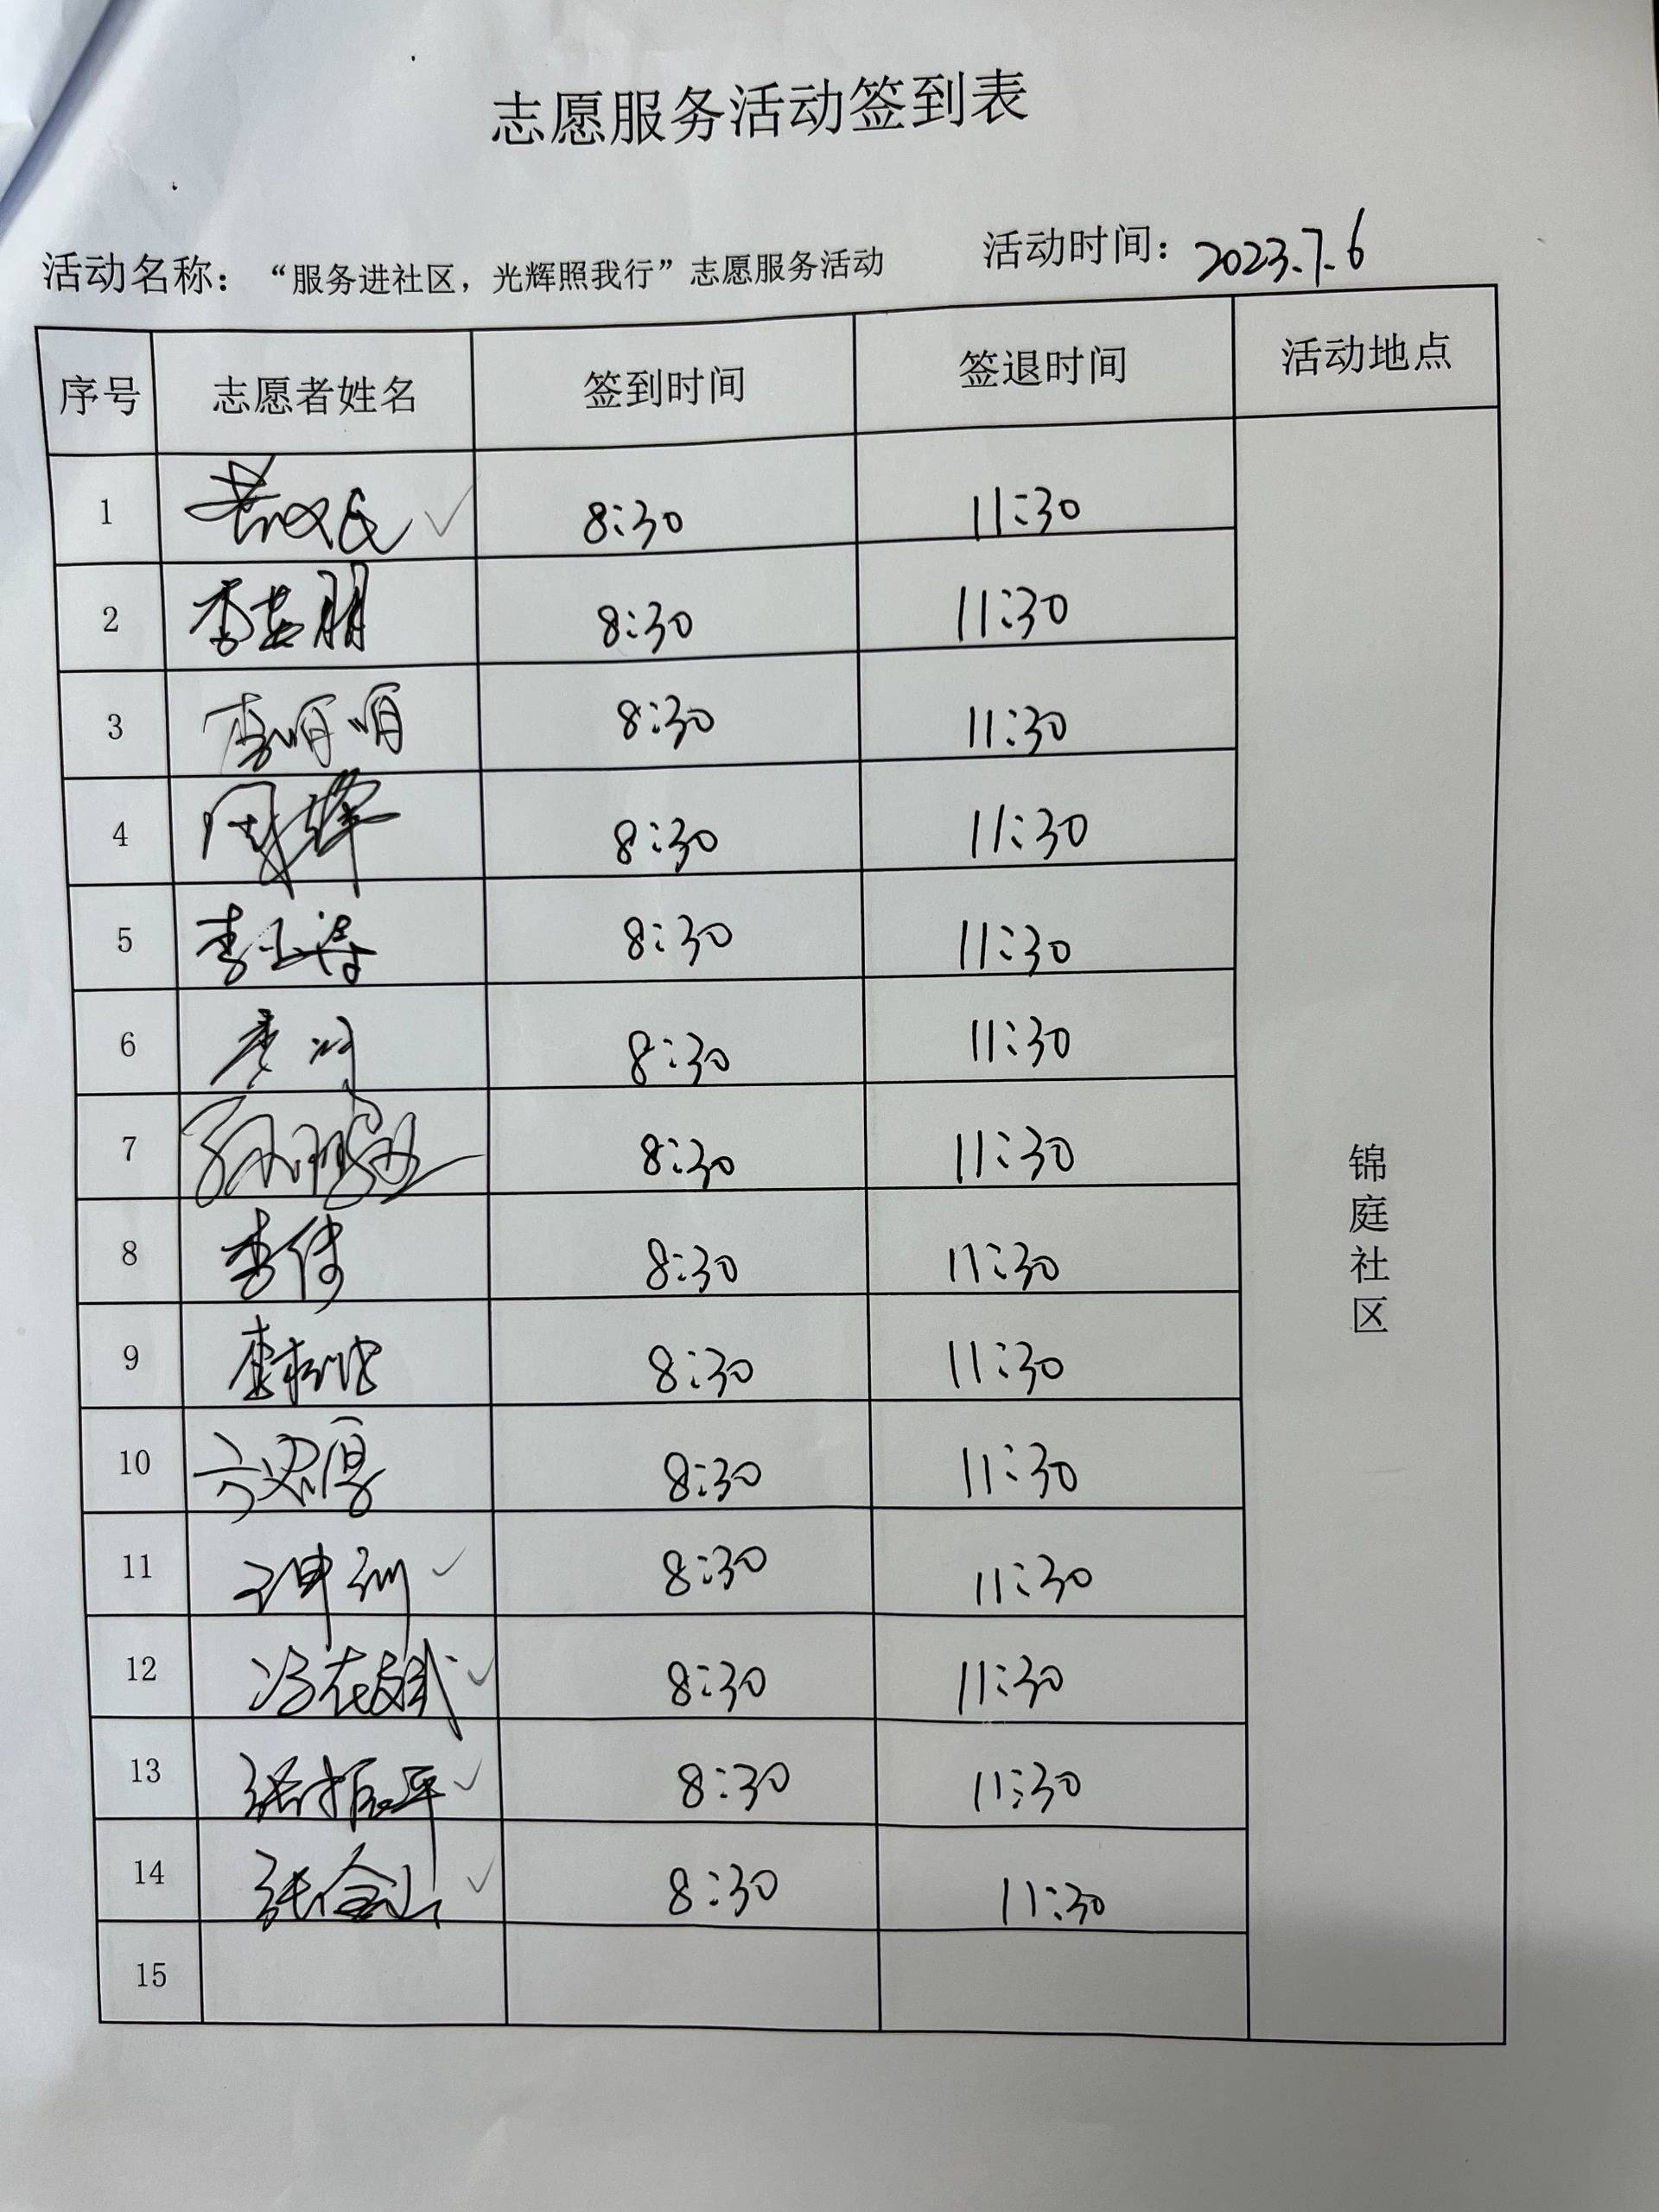 志愿服务活动签到表
活动名称：“服务进社区，光辉照我行”志愿服务活动 活动时间：2023.7.6
序号 志愿者姓名 签到时间 签退时间 活动地点
1 8:30 11:30
2 8:30 11:30
3 李明明 8:30 11:30
4 周辉 8:30 11:30
5 8:30 11:30
6 8:30 11:30
7 8:30 11:30
8 李伟 8:30 11:30
9 8:30 11:30
10 8:30 11:30
11 8:30 11:30
12 冯在斌 8:30 11:30
13 张振平 8:30 11:30
14 张金山 8:30 11:30
15
锦庭社区